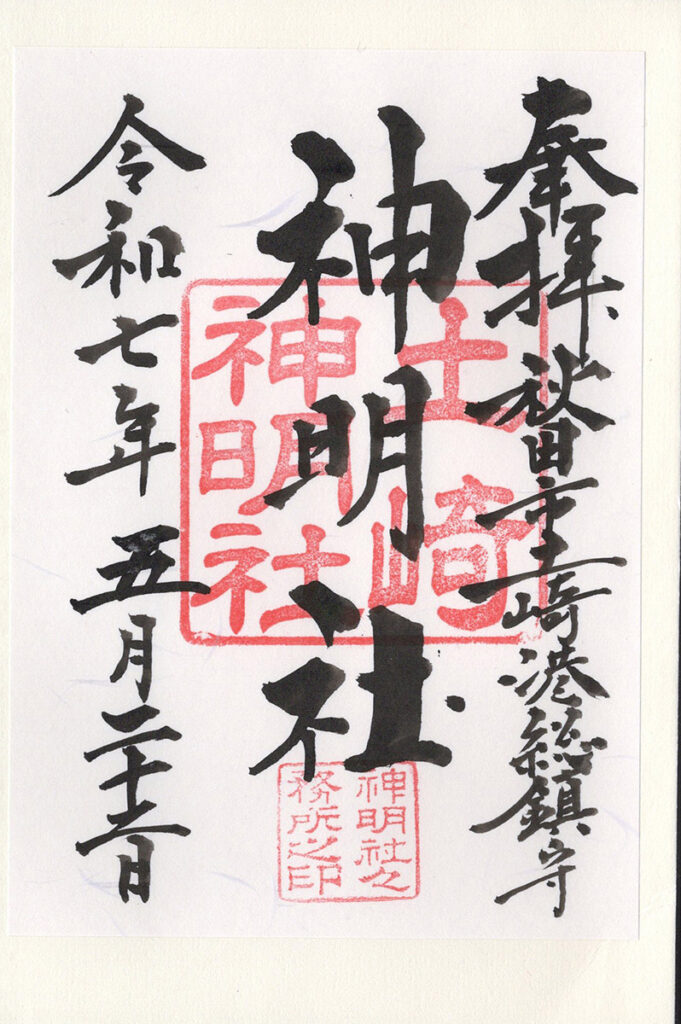 奉拝 秋田市土崎港総鎮守
神明社
令和七年五月二十日
土崎
神明社
神明社々
務所之印